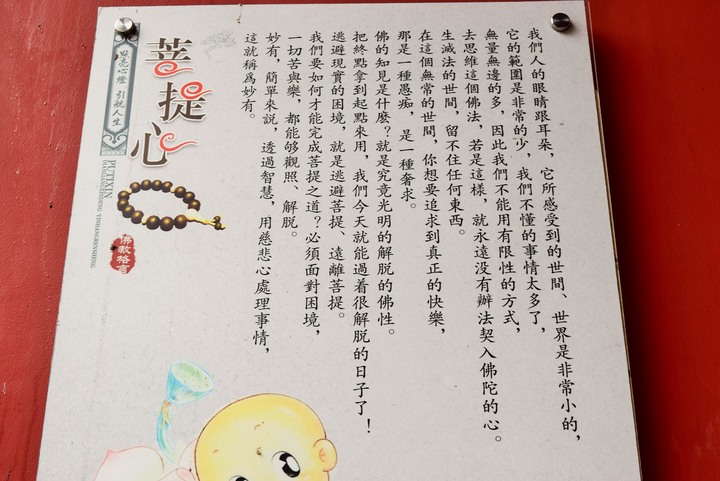 我們人的眼睛跟耳朵，它所感受到的世間、世界是非常小的，
它的範圍是非常的少，我們不懂的事情太多了，
無量無邊的多，因此我們不能用有限性的方式，
去思維這個佛法，若是這樣，就永遠没有辦法契入佛陀的心。
生滅法的世間，留不住任何東西。
在這個無常的世間，你想要追求到真正的快樂，
那是一種愚痴，是一種奢求。
佛的知見是什麼？就是究竟光明的解脱的佛性。
把終點拿到起點來用，我們今天就能過着很解脱的日子了！
逃避現實的困境，就是逃避菩提、遠離菩提。
我們要如何才能完成菩提之道？必須面對困境，
一切苦與樂，都能够觀照、解脱。
妙有，簡單來説，透過智慧，用慈悲心處理事情，
這就稱爲妙有。
菩提心
點亮心燈 引航人生
PUTIXIN
DIANLIANGXINDENG YINHANGRENSHENG
佛教格言